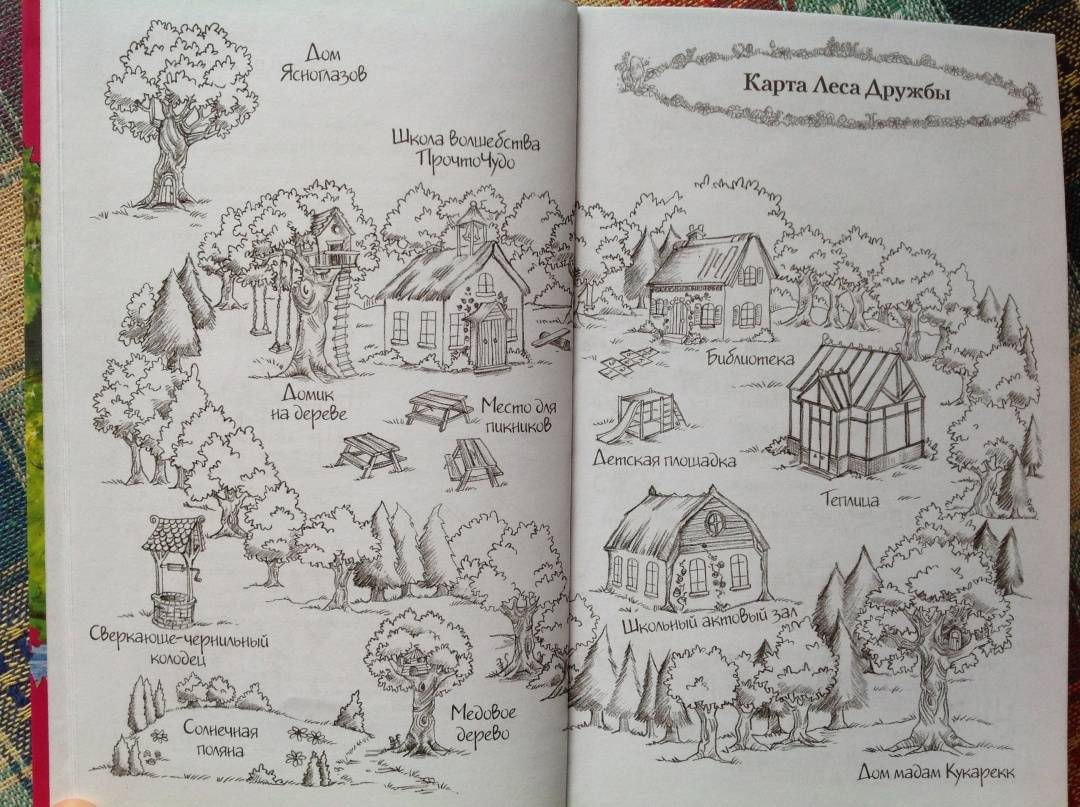 Дом
Ясноглазов
Школа волшебства
ПрочтоЧудо
Домик
на дереве
Место для
пикников
Сверкающе-чернильный
колодец
Солнечная
поляна
Медовое
дерево
Карта Леса Дружбы
Библиотека
Детская площадка
Теплица
Школьный актовый зал
Дом мадам Кукарекк